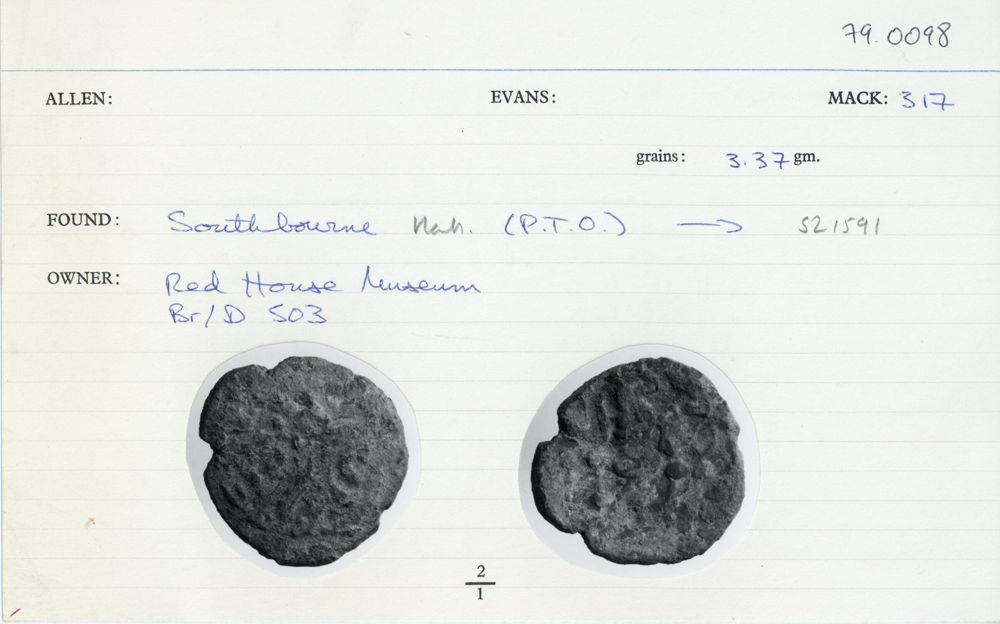 79.0098
ALLEN: EVANS: MACK: 317
grains: 3.37 gm.
FOUND: Southbourne (P.T.O.) → SZ1591
OWNER: Red House Museum
Br/D 503
2
1